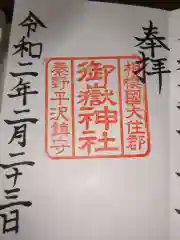 奉拝
相模國大住郡
御嶽神社
秦野平沢鎮守
令和二年二月二十三日